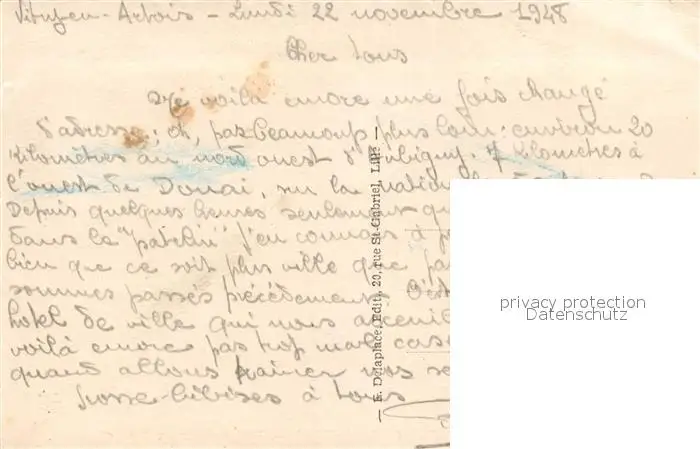 Vitry-en-Artois - Lundi 22 novembre 1948
Cher tous
Me voilà encore une fois changé
d'adresse; oh, pas beaucoup plus loin: environ 20
kilomètres au nord ouest d'Aubigny. 7 kilomètres à
l'ouest de Douai, sur la
Depuis quelques heures seulement
dans le "patelin" j'en connais à
bien que ce soit plus ville que
sommes passés précédemment. C'est
hôtel de ville qui nous
voilà encore pas trop mal
quand allons
Grosses bibises à tous
— E. Delaplace, Edit., 20, rue St-Gabriel, Lille —
privacy protection
Datenschutz